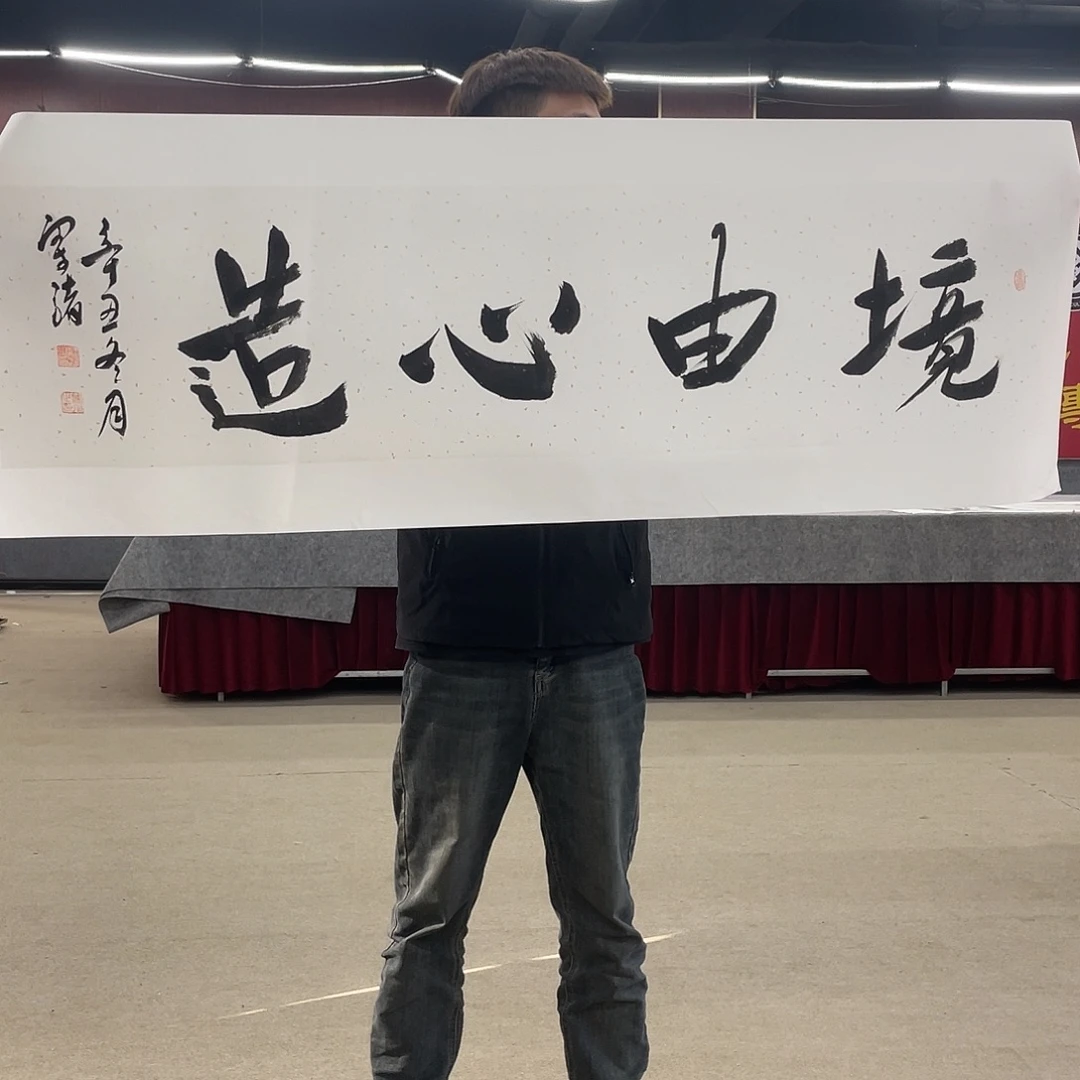 境由心造
辛丑冬月